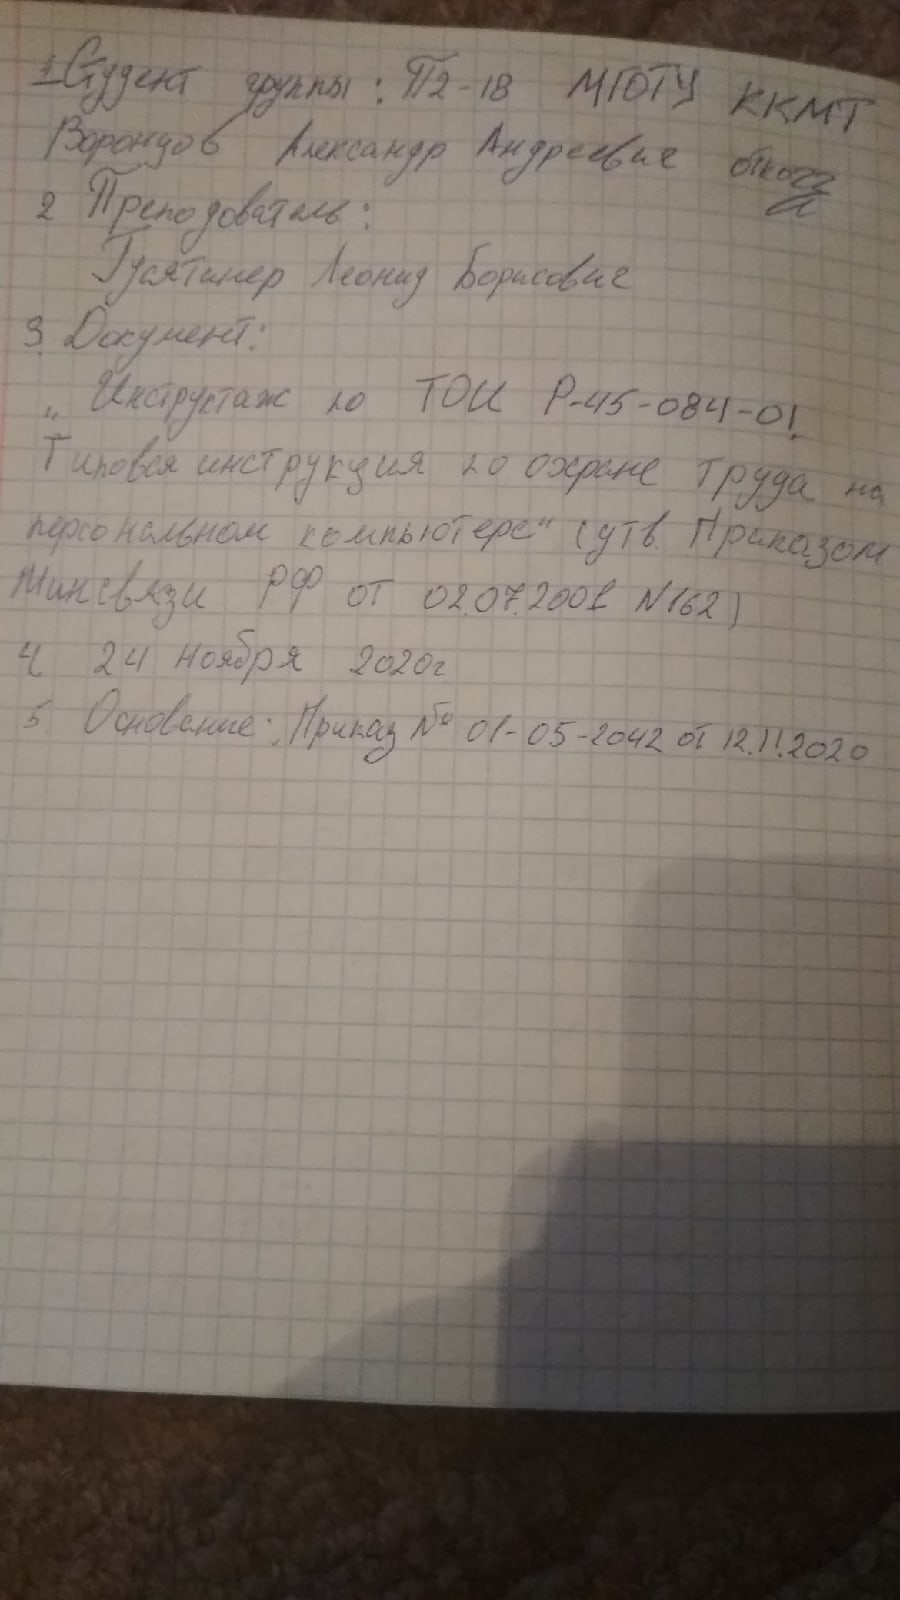 1. Студент группы: П2-18 МГОТУ ККМТ
Воронцов Александр Андреевич
2 Преподователь:
Гусятинер Леонид Борисович
3. Документ:
„ Инструктаж по ТОИ Р-45-084-01.
Типовая инструкция по охране труда на
персональном компьютере" (утв. Приказом
Минсвязи РФ от 02.07.2001 N162)
4 24 ноября 2020г
5. Основание: Приказ № 01-05-2042 от 12.11.2020